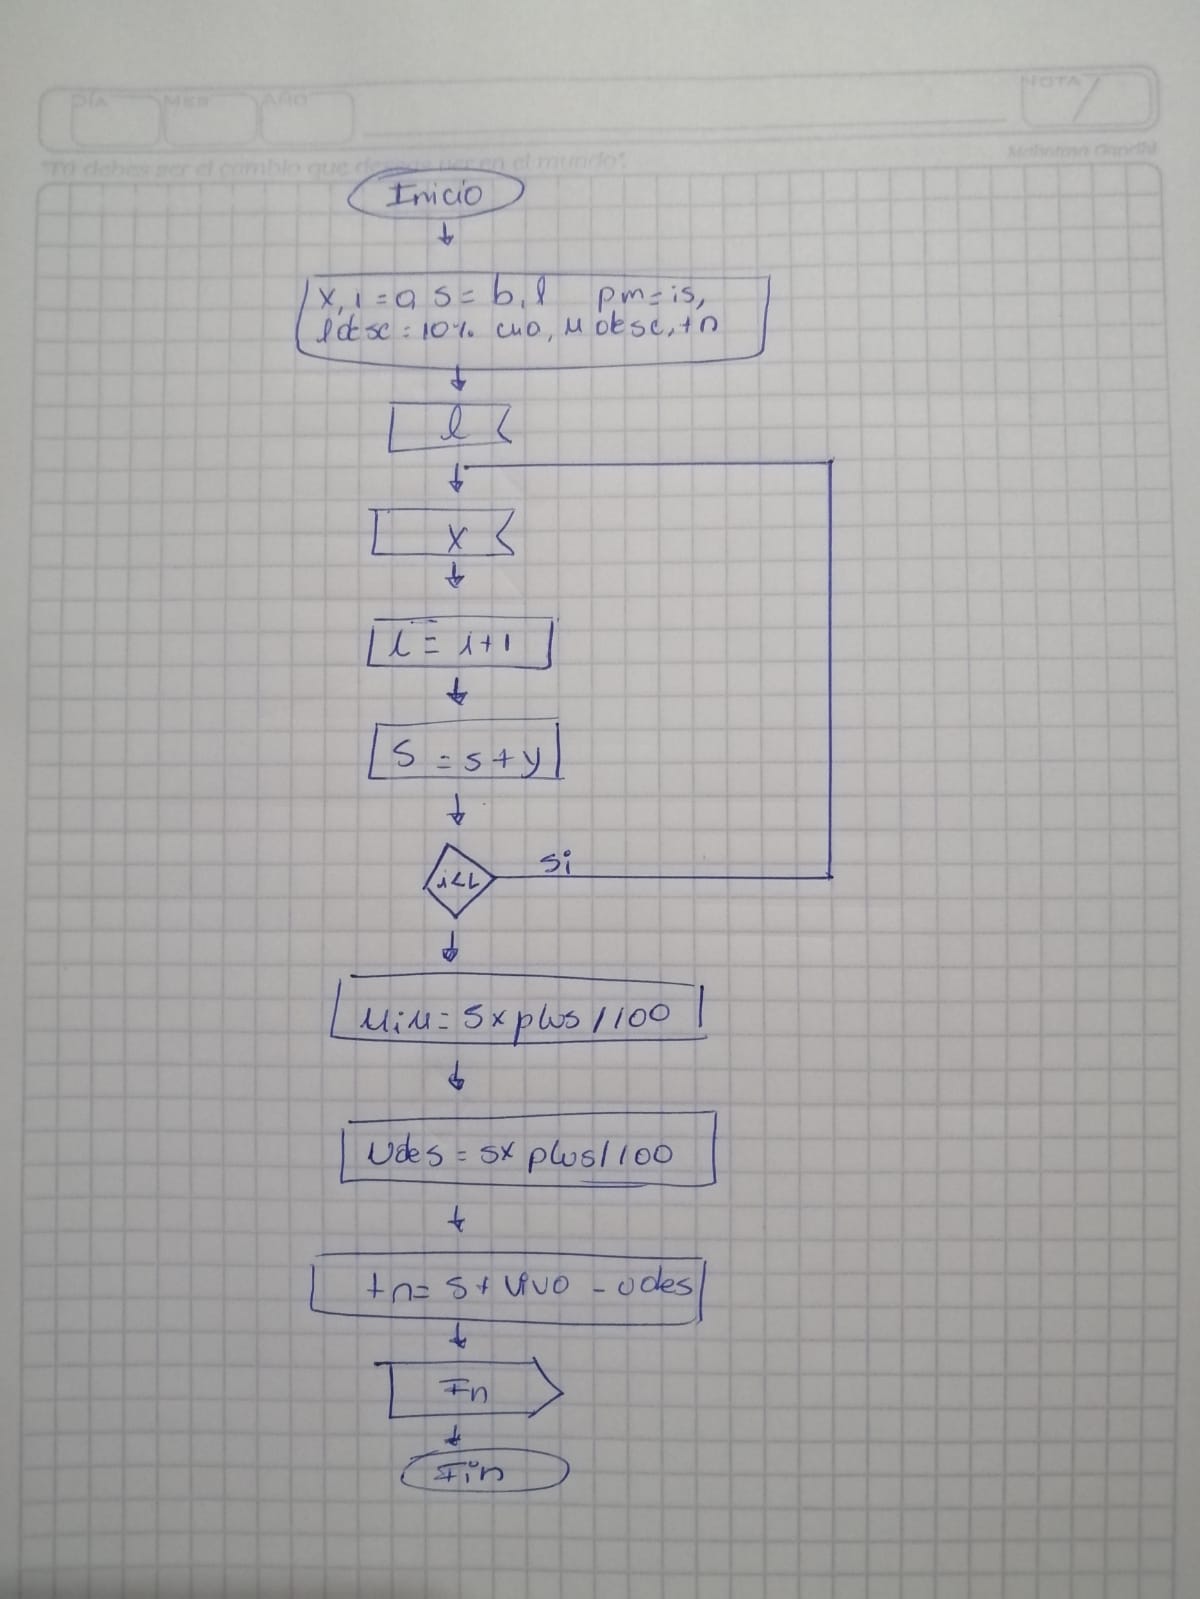 DÍA MES AÑO NOTA
"Tú debes ser el cambio que deseas ver en el mundo". Mahatma Gandhi
Inicio
x, i = a, s = b, l pm = is,
ldesc = 10% cuo, u desc, tn
l
x
i = i+1
S = s + y
i<L
Si
UiU = S x plus / 100
Udes = sx plus / 100
tn = s + vivo - udes
Fn
Fin